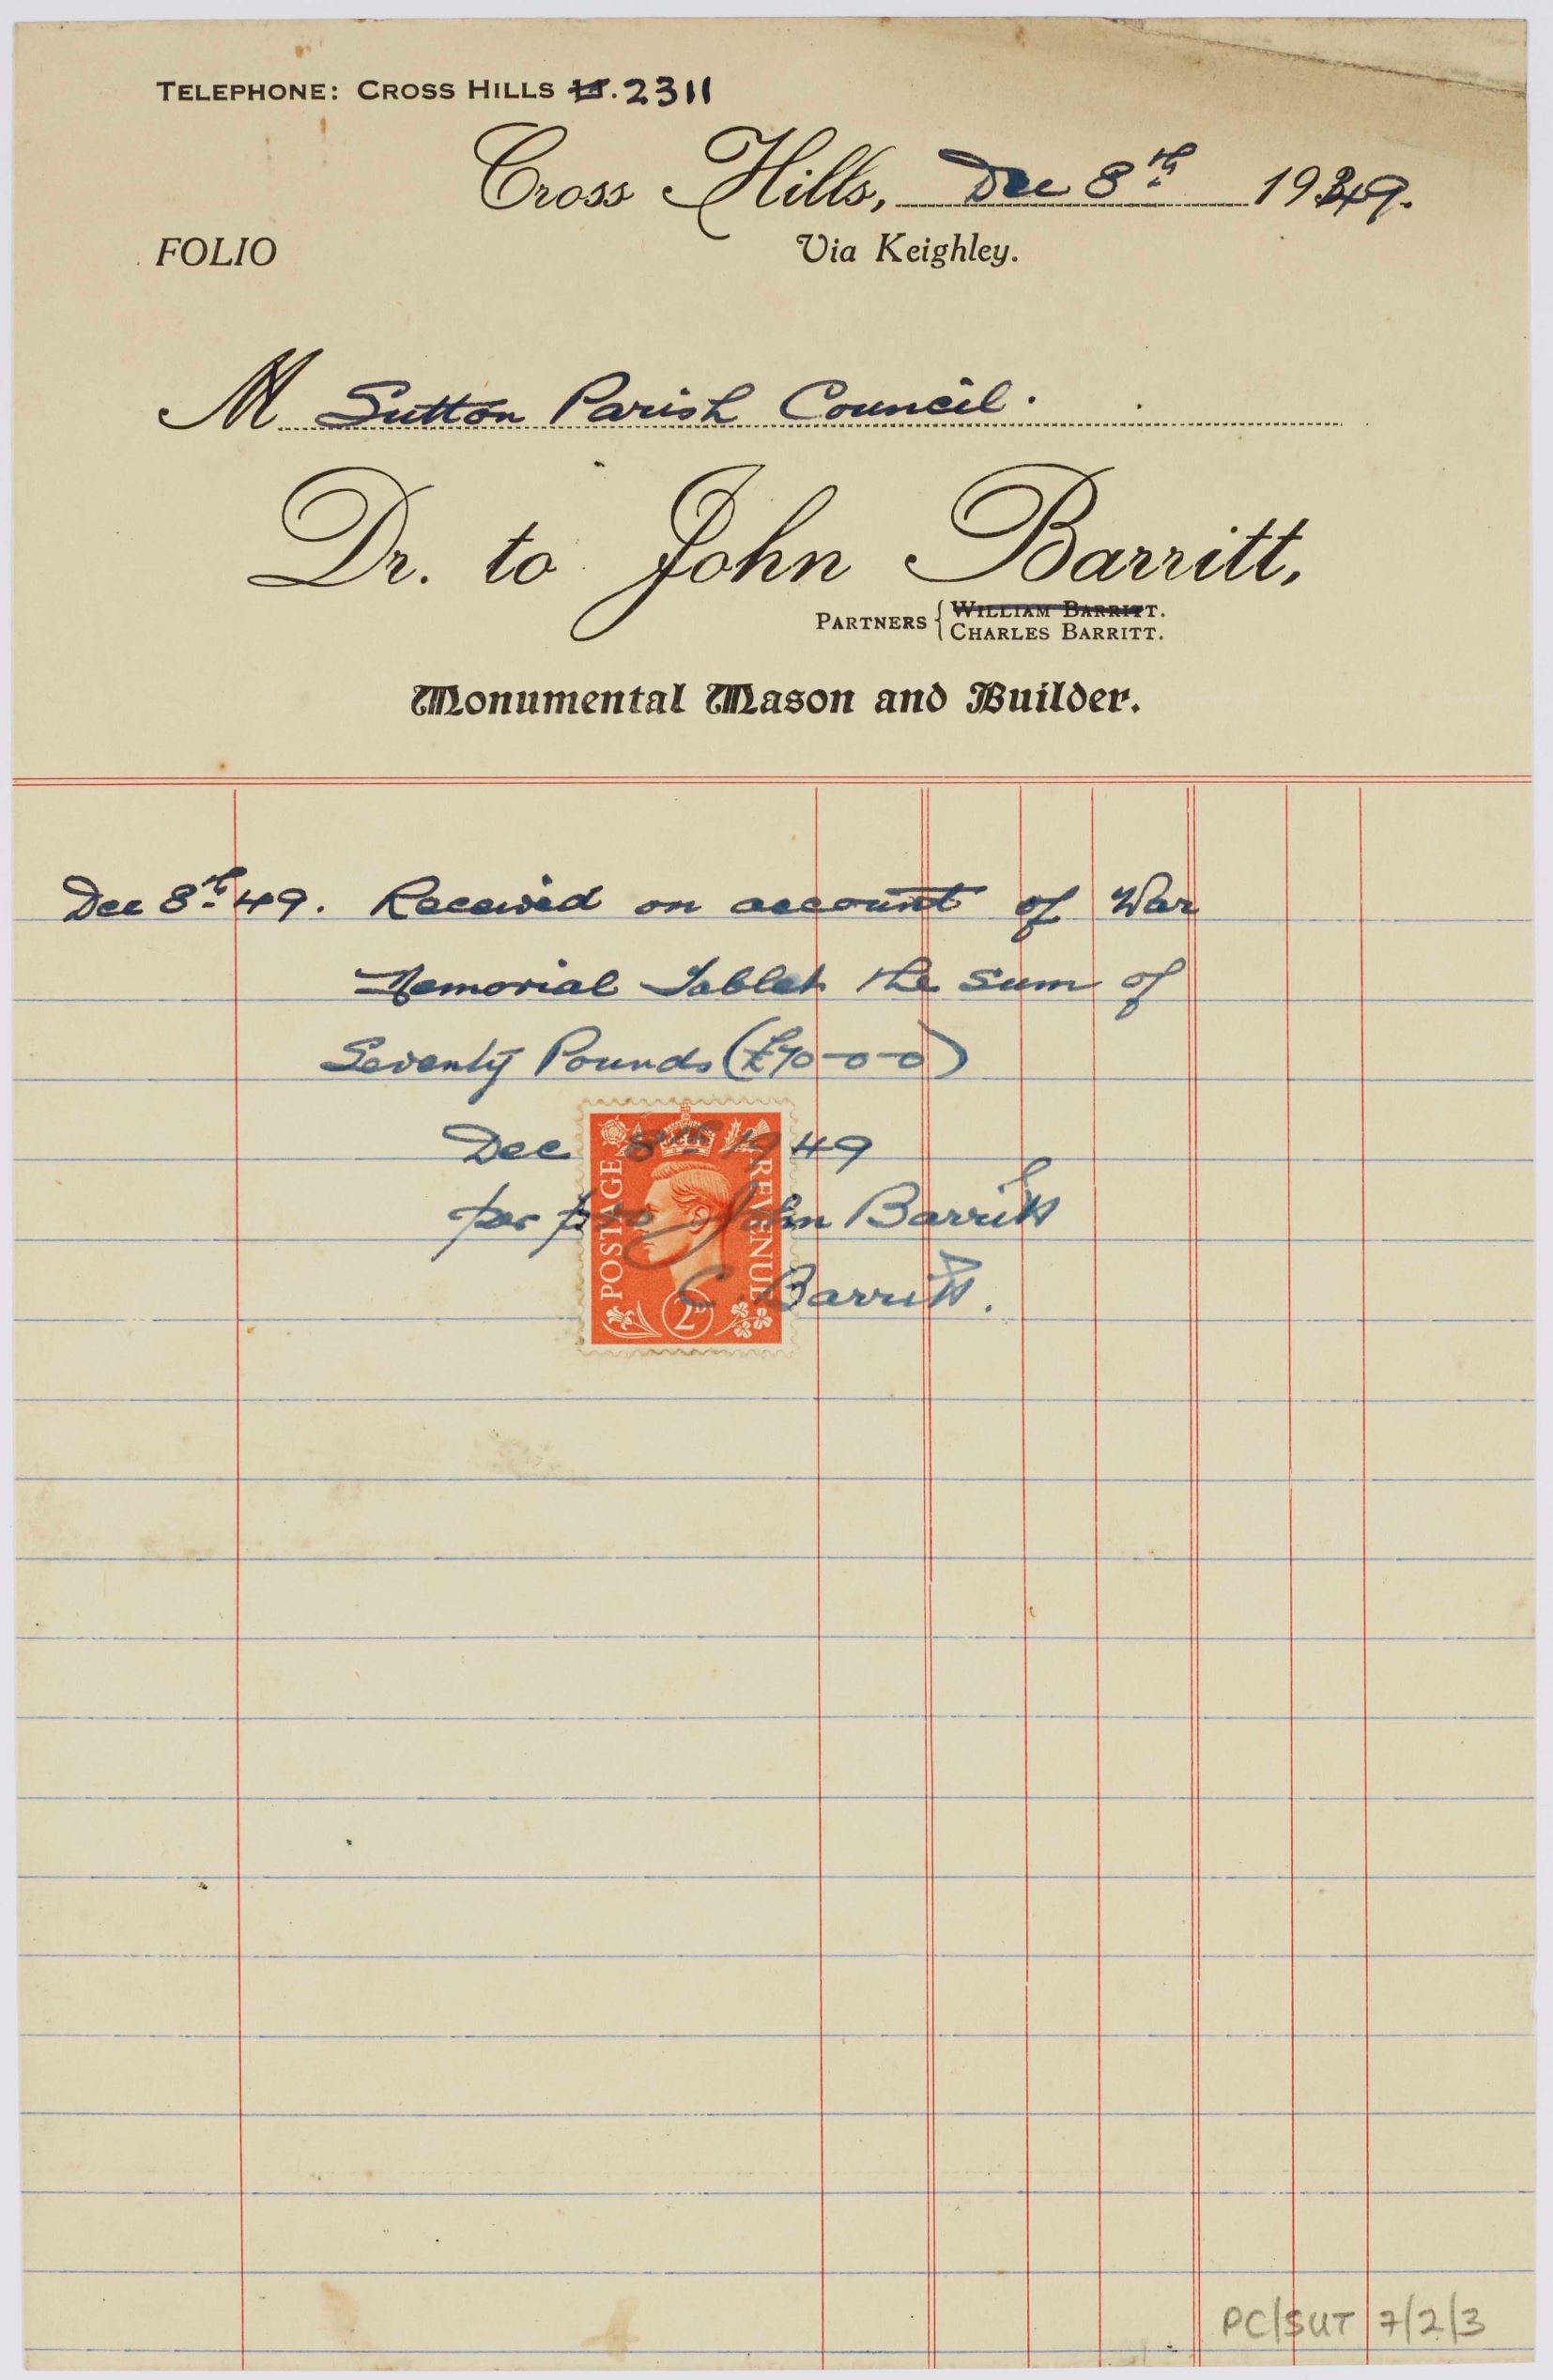 TELEPHONE: CROSS HILLS 2311
Cross Hills, Dec 8th 1949.
FOLIO
Via Keighley.
M Sutton Parish Council.
Dr. to John Barritt,
PARTNERS { WILLIAM BARRITT.
CHARLES BARRITT.
Monumental Mason and Builder.
Dec 8th 49. Received on account of War
Memorial Tablet the sum of
Seventy Pounds (£70-0-0)
Dec 8th 1949
per pro John Barritt
C. Barritt.
POSTAGE REVENUE
2D
PC/SUT 7/2/3